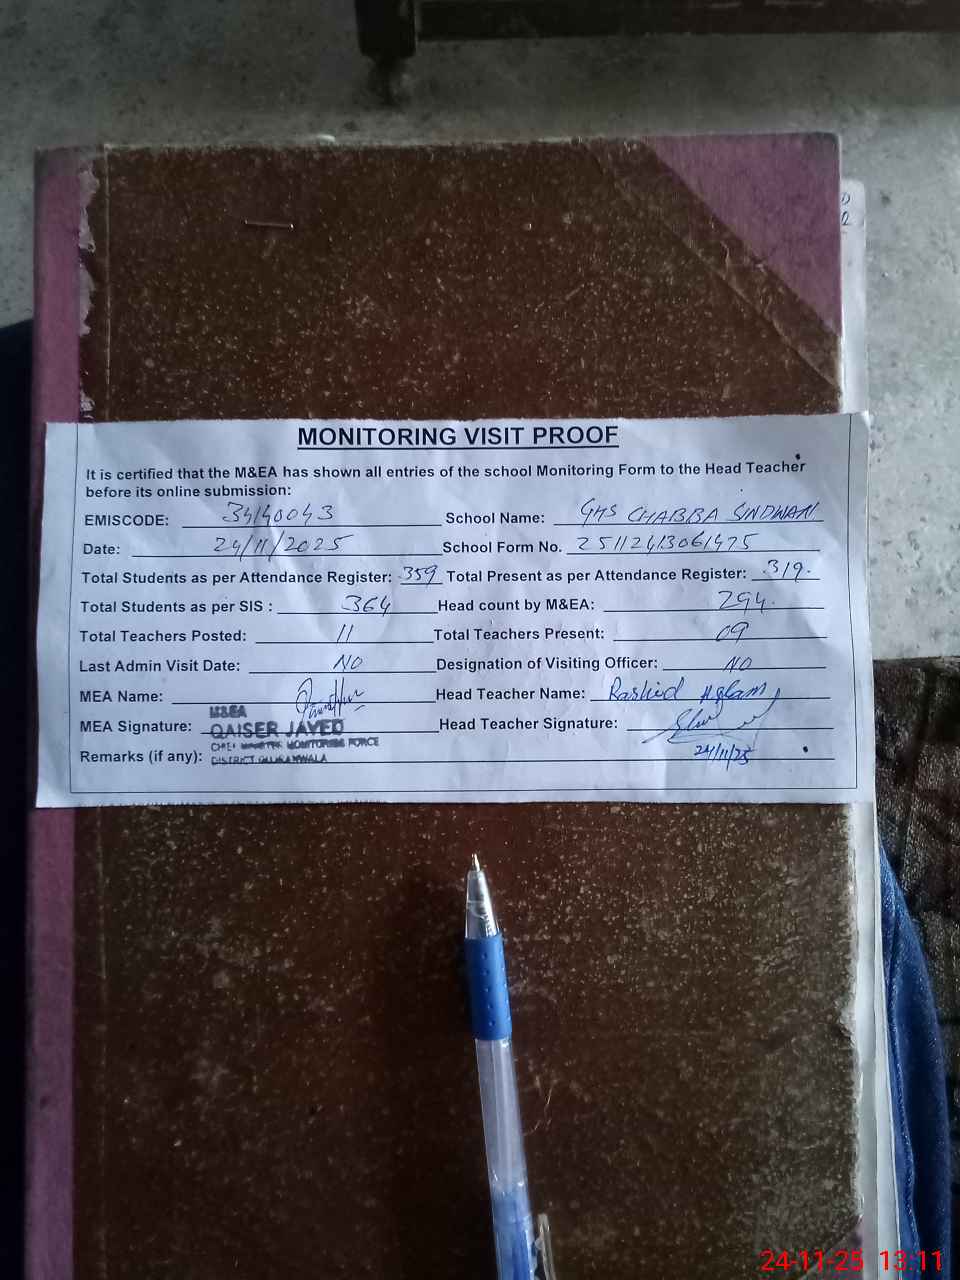 MONITORING VISIT PROOF
It is certified that the M&EA has shown all entries of the school Monitoring Form to the Head Teacher
before its online submission:
EMISCODE: 34140043 School Name: GHS CHABBA SINDWAN
Date: 24/11/2025 School Form No. 25112413061475
Total Students as per Attendance Register: 359 Total Present as per Attendance Register: 319
Total Students as per SIS : 364 Head count by M&EA: 294
Total Teachers Posted: 11 Total Teachers Present: 09
Last Admin Visit Date: NO Designation of Visiting Officer: NO
MEA Name: Head Teacher Name: Rashid Aslam
M&EA
MEA Signature: QAISER JAVED Head Teacher Signature:
CHIEF MINISTER MONITORING FORCE
Remarks (if any): DISTRICT GUJRANWALA 24/11/25
24-11-25 13:11